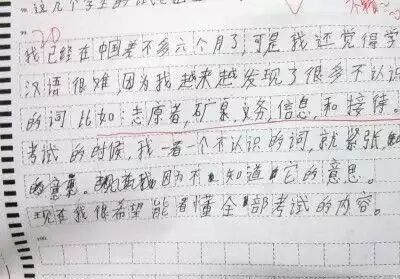 这几个学生的
20
我已经在中国差不多六个月了,可是我还觉得学
汉语很难,因为我越来越发现了很多不认识
的词比如:志愿者,矿泉,义务,信息,和接待。
考试的时候,我一看一个不认识的词,就紧张
因为不知道它的意思。
现在我很希望能看懂全部考试的内容。